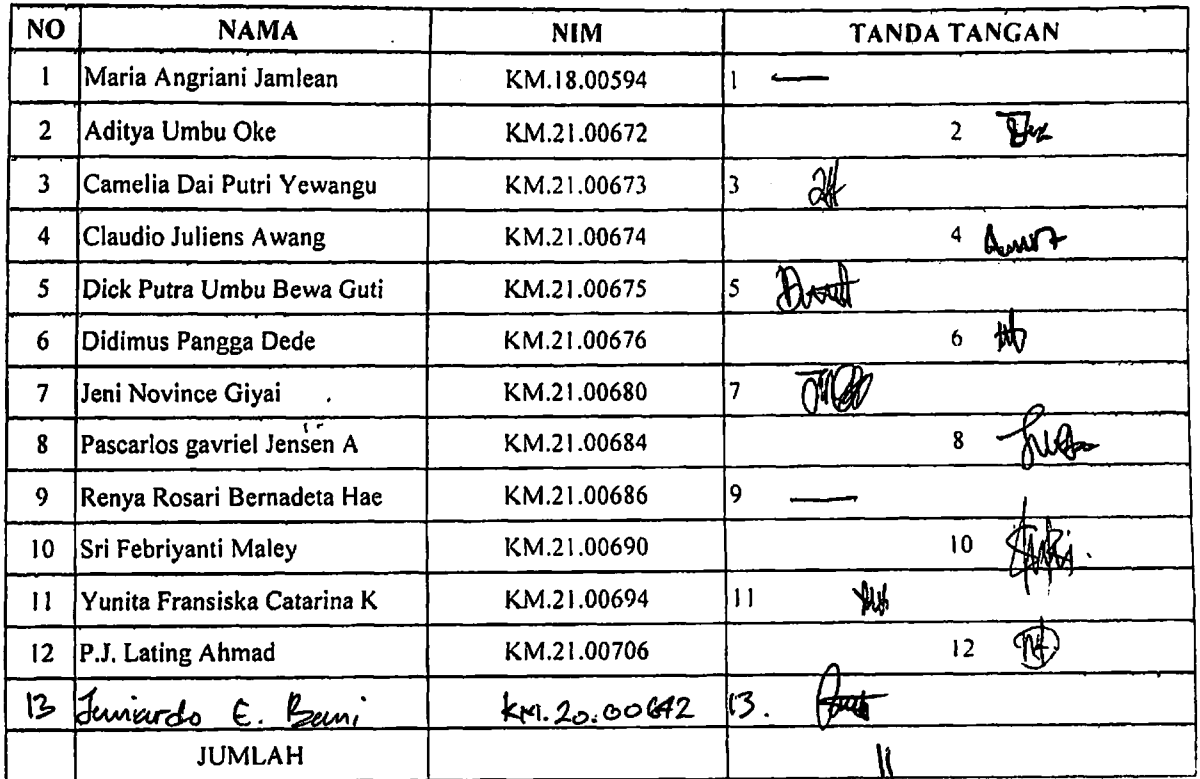 NO NAMA NIM TANDA TANGAN
1 Maria Angriani Jamlean KM.18.00594 1 —
2 Aditya Umbu Oke KM.21.00672 2
3 Camelia Dai Putri Yewangu KM.21.00673 3
4 Claudio Juliens Awang KM.21.00674 4
5 Dick Putra Umbu Bewa Guti KM.21.00675 5
6 Didimus Pangga Dede KM.21.00676 6
7 Jeni Novince Giyai KM.21.00680 7
8 Pascarlos gavriel Jensen A KM.21.00684 8
9 Renya Rosari Bernadeta Hae KM.21.00686 9 —
10 Sri Febriyanti Maley KM.21.00690 10
11 Yunita Fransiska Catarina K KM.21.00694 11
12 P.J. Lating Ahmad KM.21.00706 12
13 E. KM.20.00642 13.
JUMLAH 11